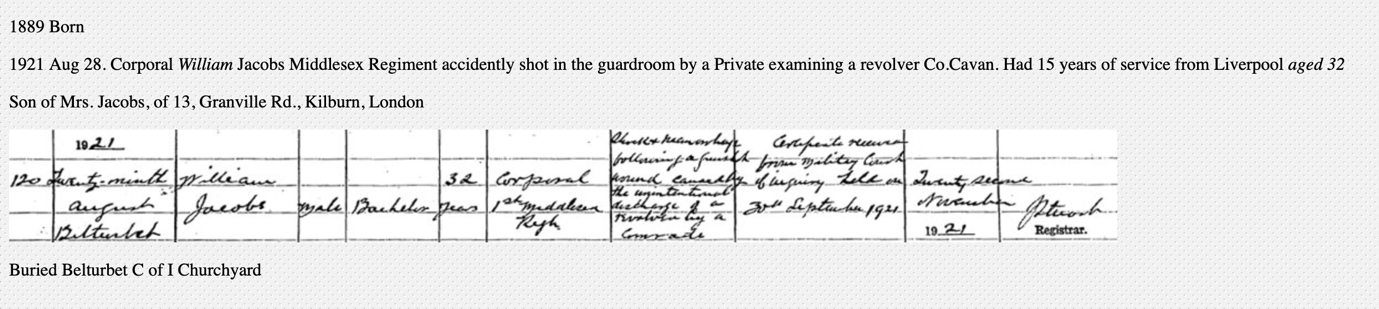 1889 Born
1921 Aug 28. Corporal William Jacobs Middlesex Regiment accidently shot in the guardroom by a Private examining a revolver Co.Cavan. Had 15 years of service from Liverpool aged 32
Son of Mrs. Jacobs, of 13, Granville Rd., Kilburn, London
1921
120 Twenty-ninth August Belturbet
William Jacobs
Male
Bachelor
32 years
Corporal 1st Middlesex Regt
Shock & Haemorrhage
following a gunshot
wound caused by
the unintentional
discharge of a
revolver by a
Comrade
Certificate received
from Military Court
of inquiry held on
30th September 1921
Twenty second
November
1921
Registrar.
Buried Belturbet C of I Churchyard